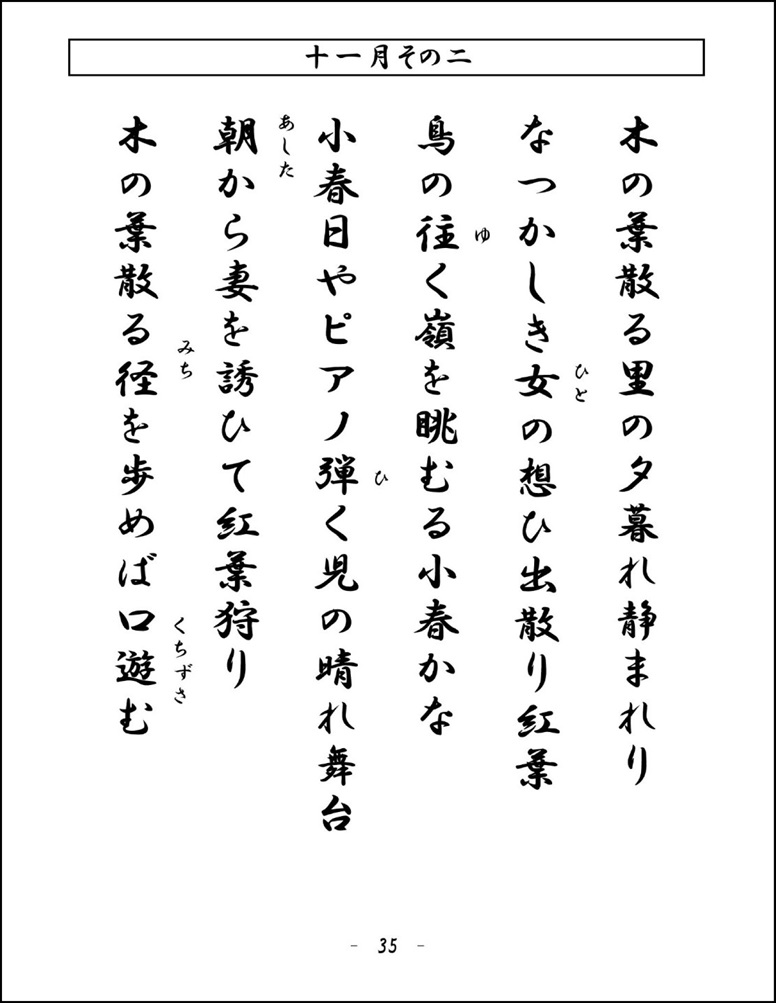 十一月その二
木の葉散る里の夕暮れ静まれり
なつかしき女の想ひ出散り紅葉
ひと
鳥の往く嶺を眺むる小春かな
ゆ
小春日やピアノ弾く児の晴れ舞台
ひ
朝から妻を誘ひて紅葉狩り
あした
木の葉散る径を歩めば口遊む
みち
くちずさ
- 35 -